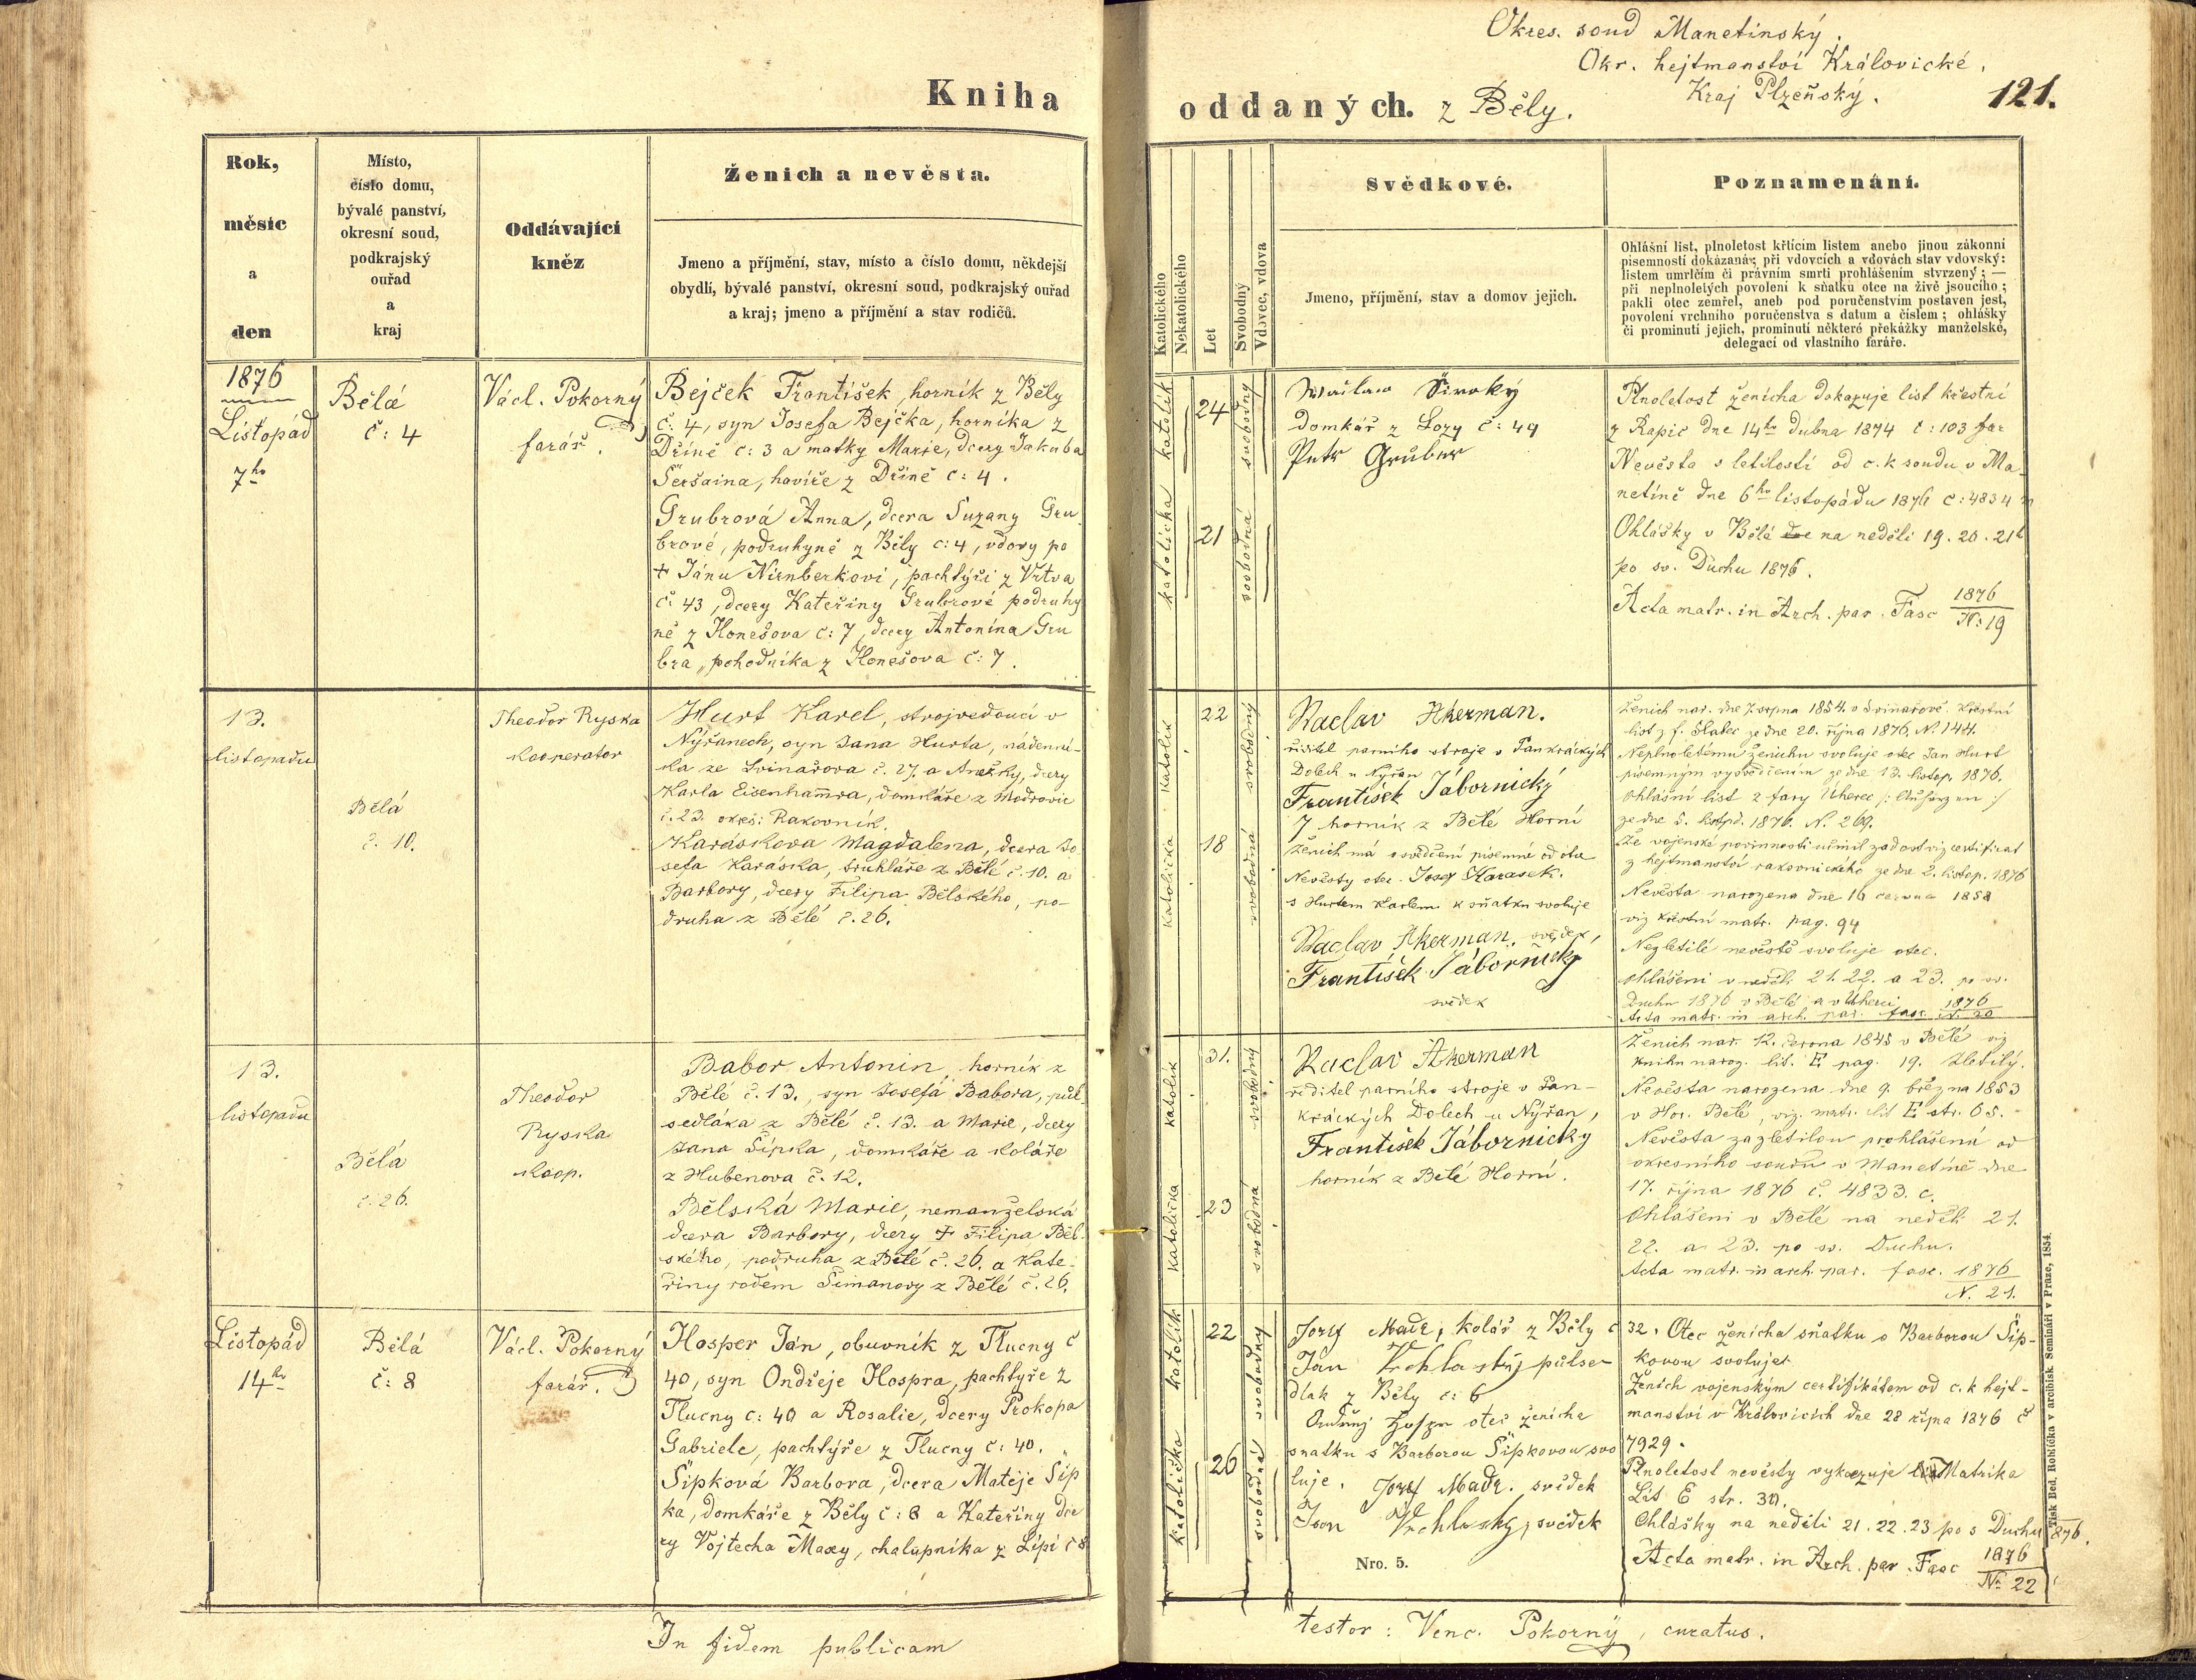 Okres. soud Manetinský.
Okr. hejtmanství Královické.
Kraj Plzeňský.
121.
Kniha
oddaných. z Běly.
Rok,
měsíc
a
den
Místo,
číslo domu,
bývalé panství,
okresní soud,
podkrajský
ouřad
a
kraj
Oddávající
kněz
Ženich a nevěsta.
Jmeno a příjmění, stav, místo a číslo domu, někdejší
obydlí, bývalé panství, okresní soud, podkrajský ouřad
a kraj; jmeno a příjmění a stav rodičů.
Katolického
Nekatolického
Let
Svobodný
Vdovec, vdova
Svědkové.
Jmeno, příjmění, stav a domov jejich.
Poznamenání.
Ohlášní list, plnoletost křtícím listem anebo jinou zákonní
písemností dokázaná; při vdovcích a vdovách stav vdovský:
listem umrlčím či právním smrti prohlášením stvrzený; —
při neplnoletých povolení k sňatku otce na živě jsoucího;
pakli otec zemřel, aneb pod poručenstvím postaven jest,
povolení vrchního poručenstva s datum a číslem; ohlášky
či prominutí jejich, prominutí některé překážky manželské,
delegací od vlastního faráře.
1876
Listopad
7ho
Bělá
č: 4
Václ. Pokorný
farář.
Bejček František, horník z Běly
č. 4, syn Josefa Bejčka, horníka z
Dříně č: 3 a matky Marie, dcery Jakuba
Seršaina, havíře z Dříně č: 4.
Grubrová Anna, dcera Suzany Gru
brové, podruhyně z Běly č: 4, vdovy po
+ Jánu Nirnberkovi, pachtýři z Vrtva
č: 43, dcery Kateřiny Grubrové podruhy
ně z Honešova č: 7, dcery Antonína Gru
bra, pohodníka z Honešova č: 7.
katolík
24
svobodný
katolička
21
svobodná
Široký
domkář z Lozy č: 49
Petr Gruber
Plnoletost ženicha dokazuje list křestní
z Rapic dne 14ho dubna 1874 č: 103
Nevěsta s letilostí od c. k soudu v Ma
netíně dne 6ho listopádu 1876 č: 4834
Ohlášky v Bělé na neděli 19. 20. 21
po sv. Duchu 1876.
Acta matr. in Arch. par. Fasc 1876
N: 19
13.
listopadu
Bělá
č. 10.
Theodor Ryska
kooperator
Hurt Karel, strojvedoucí v
Nýřanech, syn Jana Hurta, nádenní-
ka ze Svinařova č. 27. a Anežky, dcery
Karla Eisenham̄ra, domkáře z Modrovic
č. 23. okres: Rakovník.
Karáskova Magdalena, dcera Jo
sefa Karáska, truhláře z Bělé č. 10. a
Barbory, dcery Filipa Bělského, po-
druha z Bělé č. 26.
katolík
22
svobodný
katolička
18
svobodná
Waclav Akerman.
ředitel parního stroje v Pankráckých
Dolech u Nýřan
František Jábornický
horník z Bělé Horní
Ženich má osvědčení písemné od otce
Nevěsty otec Josef Karasek.
s Hurtem Karlem k sňatku svoluje
Waclav Akerman, svědek,
František Jábornický
svědek
Ženich nar. dne 7. srpna 1854. v Svinařově. Křestní
list z f. Slabec ze dne 20. října 1876, N. 144.
Neplnoletému ženichu svoluje otec Jan Hurt
písemným vysvědčením ze dne 13. listop. 1876.
Ohlášní list z fary Úherec
ze dne 5. listpd. 1876. N. 269.
Že vojenské povinnosti učinil zadost viz certifikat
z hejtmanství rakovnického ze dne 2. listop. 1876
Nevěsta narozena dne 16 června 1858
viz křestní matr. pag. 94
Nezletilé nevěstě svoluje otec.
Ohlášeni v neděli 21. 22. a 23. po sv.
Duchu 1876 v Bělé a v Úherci 1876
Acta matr. in arch. par. fasc. N. 20
13.
listopadu
Bělá
č. 26.
Theodor
Ryska
koop.
Babor Antonin, horník z
Bělé č. 13., syn Josefa Babora, půl-
sedláka z Bělé č. 13. a Marie, dcery
Jana Šípka, domkáře a koláře
z Hubenova č. 12.
Bělská Marie, nemanželská
dcera Barbory, dcery + Filipa Běl-
ského, podruha z Bělé č. 26. a Kate-
řiny rodem Šimanovy z Bělé č. 26.
katolík
31.
svobodný
katolička
23
svobodná
Waclav Akerman
ředitel parního stroje v Pan-
kráckých Dolech u Nýřan,
František Jábornický
horník z Bělé Horní.
Ženich nar. 12. června 1845 v Bělé viz
knihu naroz. lit. E pag. 19. Zletilý.
Nevěsta narozena dne 9. března 1853
v Hor. Bělé, viz. matr. lit E str. 65.
Nevěsta za zletilou prohlášená od
okresního soudu v Manetíně dne
17. října 1876 č. 4833. c.
Ohlášeni v Bělé na neděli 21.
22. a 23. po sv. Duchu.
Acta matr. in arch. par. fasc. 1876
N. 21.
Listopád
14ho
Bělá
č: 8
Václ. Pokorný
farář.
Hosper Ján, obuvník z Tlucny č
40, syn Ondřeje Hospra, pachtýře z
Tlucny č: 40 a Rosalie, dcery Prokopa
Gabriele, pachtýře z Tlucny č: 40.
Šípková Barbora, dcera Matěje Šíp
ka, domkáře z Běly č: 8 a Kateřiny dce
ry Vojtecha Maxy, chalupníka z Lípí č 8
katolík
22
svobodný
katolička
26
svobodná
Josef Madr, kolář z Běly č 32.
Ján Vrchlavský půlse-
dlák z Běly č: 6
otec ženicha
snatku s Barborou Šípkovou svo
luje. Josef Madr. svědek
Jan Vrchlavský, svědek
Otec ženicha sňatku s Barborou Šíp-
kovou svoluje.
Ženich vojenským certifikátem od c. k hejt-
manství v Královicích dne 28 října 1876 č
7929.
Plnoletost nevěsty vykazuje Matrika
Lit E str. 30.
Ohlášky na neděli 21. 22. 23 po s Duchu 1876.
Acta matr. in Arch. par. Fasc 1876
N: 22
Nro. 5.
Tisk Bed. Rohlíčka v arcibisk Semináři v Praze, 1854.
In fidem publicam
testor: Venc. Pokorný, curatus.